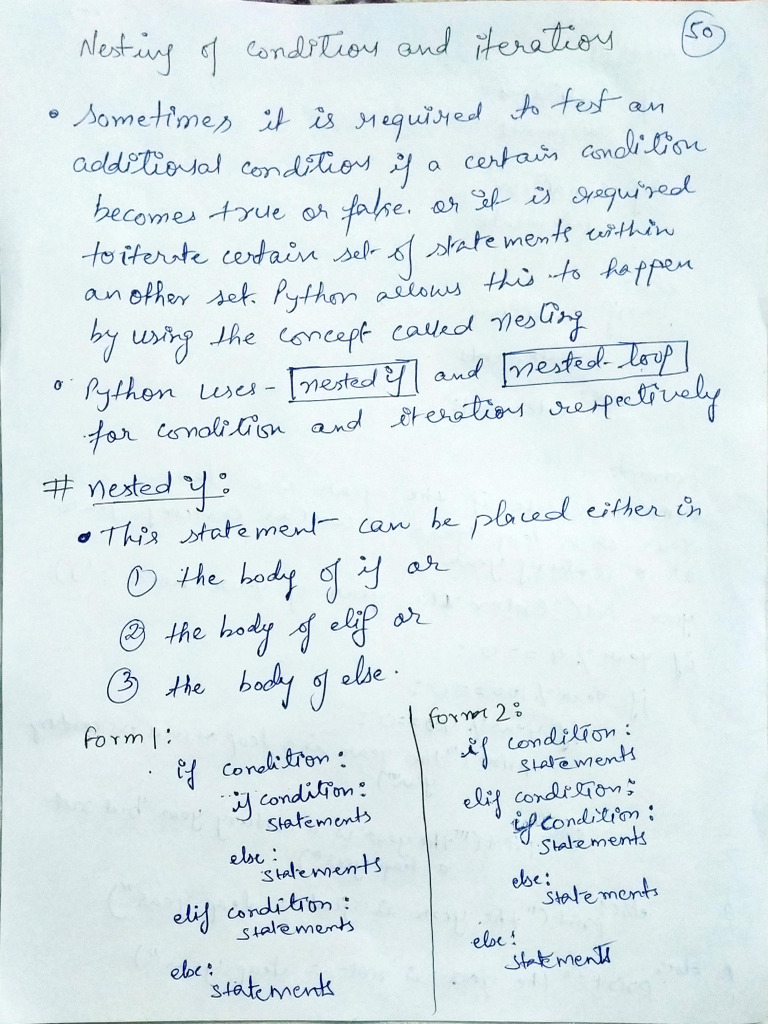 Nesting of condition and iteration
50
• Sometimes it is required to test an
additional condition if a certain condition
becomes true or false. or it is required
to iterate certain set of statements within
another set. Python allows this to happen
by using the concept called nesting
• Python uses - nested if and nested-loop
for condition and iteration respectively
# nested if:
• This statement can be placed either in
① the body of if or
② the body of elif or
③ the body of else.
form 1:
if condition:
if condition:
statements
else:
statements
elif condition:
statements
else:
statements
form 2:
if condition:
statements
elif condition:
if condition:
statements
else:
statements
else:
statements